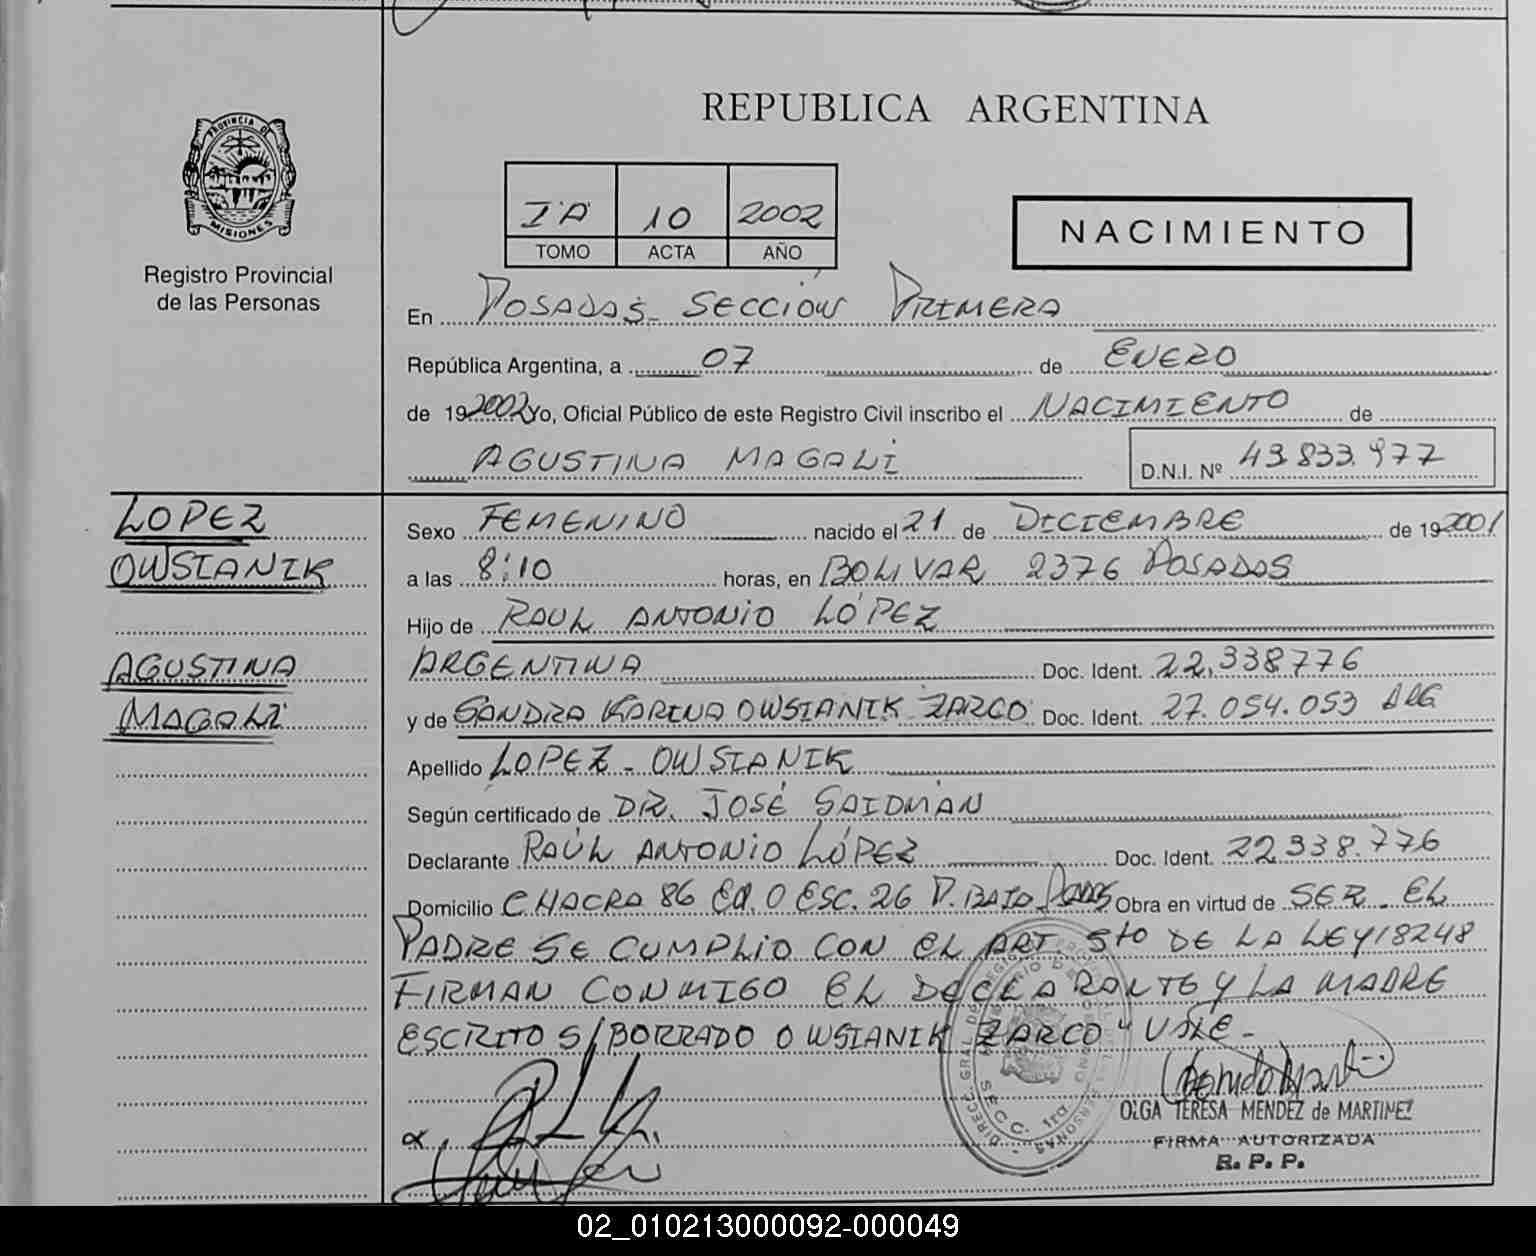 REPUBLICA ARGENTINA
PROVINCIA DE
MISIONES
Registro Provincial
de las Personas
IA 10 2002
TOMO ACTA AÑO
NACIMIENTO
En POSADAS SECCIÓN PRIMERA
República Argentina, a 07 de ENERO
de 192002 Yo, Oficial Público de este Registro Civil inscribo el NACIMIENTO de
AGUSTINA MAGALI D.N.I. Nº 43.833.977
LOPEZ
OWSIANIK
AGUSTINA
MAGALI
Sexo FEMENINO nacido el 21 de DICIEMBRE de 192001
a las 8:10 horas, en BOLIVAR 2376 POSADAS
Hijo de RAUL ANTONIO LÓPEZ
ARGENTINA Doc. Ident. 22.338776
y de SANDRA KARINA OWSIANIK ZARCO Doc. Ident. 27.054.053 ARG
Apellido LOPEZ - OWSIANIK
Según certificado de DR. JOSÉ SAIDMAN
Declarante RAÚL ANTONIO LÓPEZ Doc. Ident. 22.338.776
Domicilio CHACRA 86 Ed. O ESC. 26 P. BAJO Obra en virtud de SER EL
PADRE SE CUMPLIO CON EL ART 5to DE LA LEY 18248
FIRMAN CONMIGO EL DECLARANTE Y LA MADRE
ESCRITO S/BORRADO OWSIANIK ZARCO" VALE-
SECC. 1ra
OLGA TERESA MENDEZ de MARTINEZ
FIRMA AUTORIZADA
R. P. P.
02_010213000092-000049